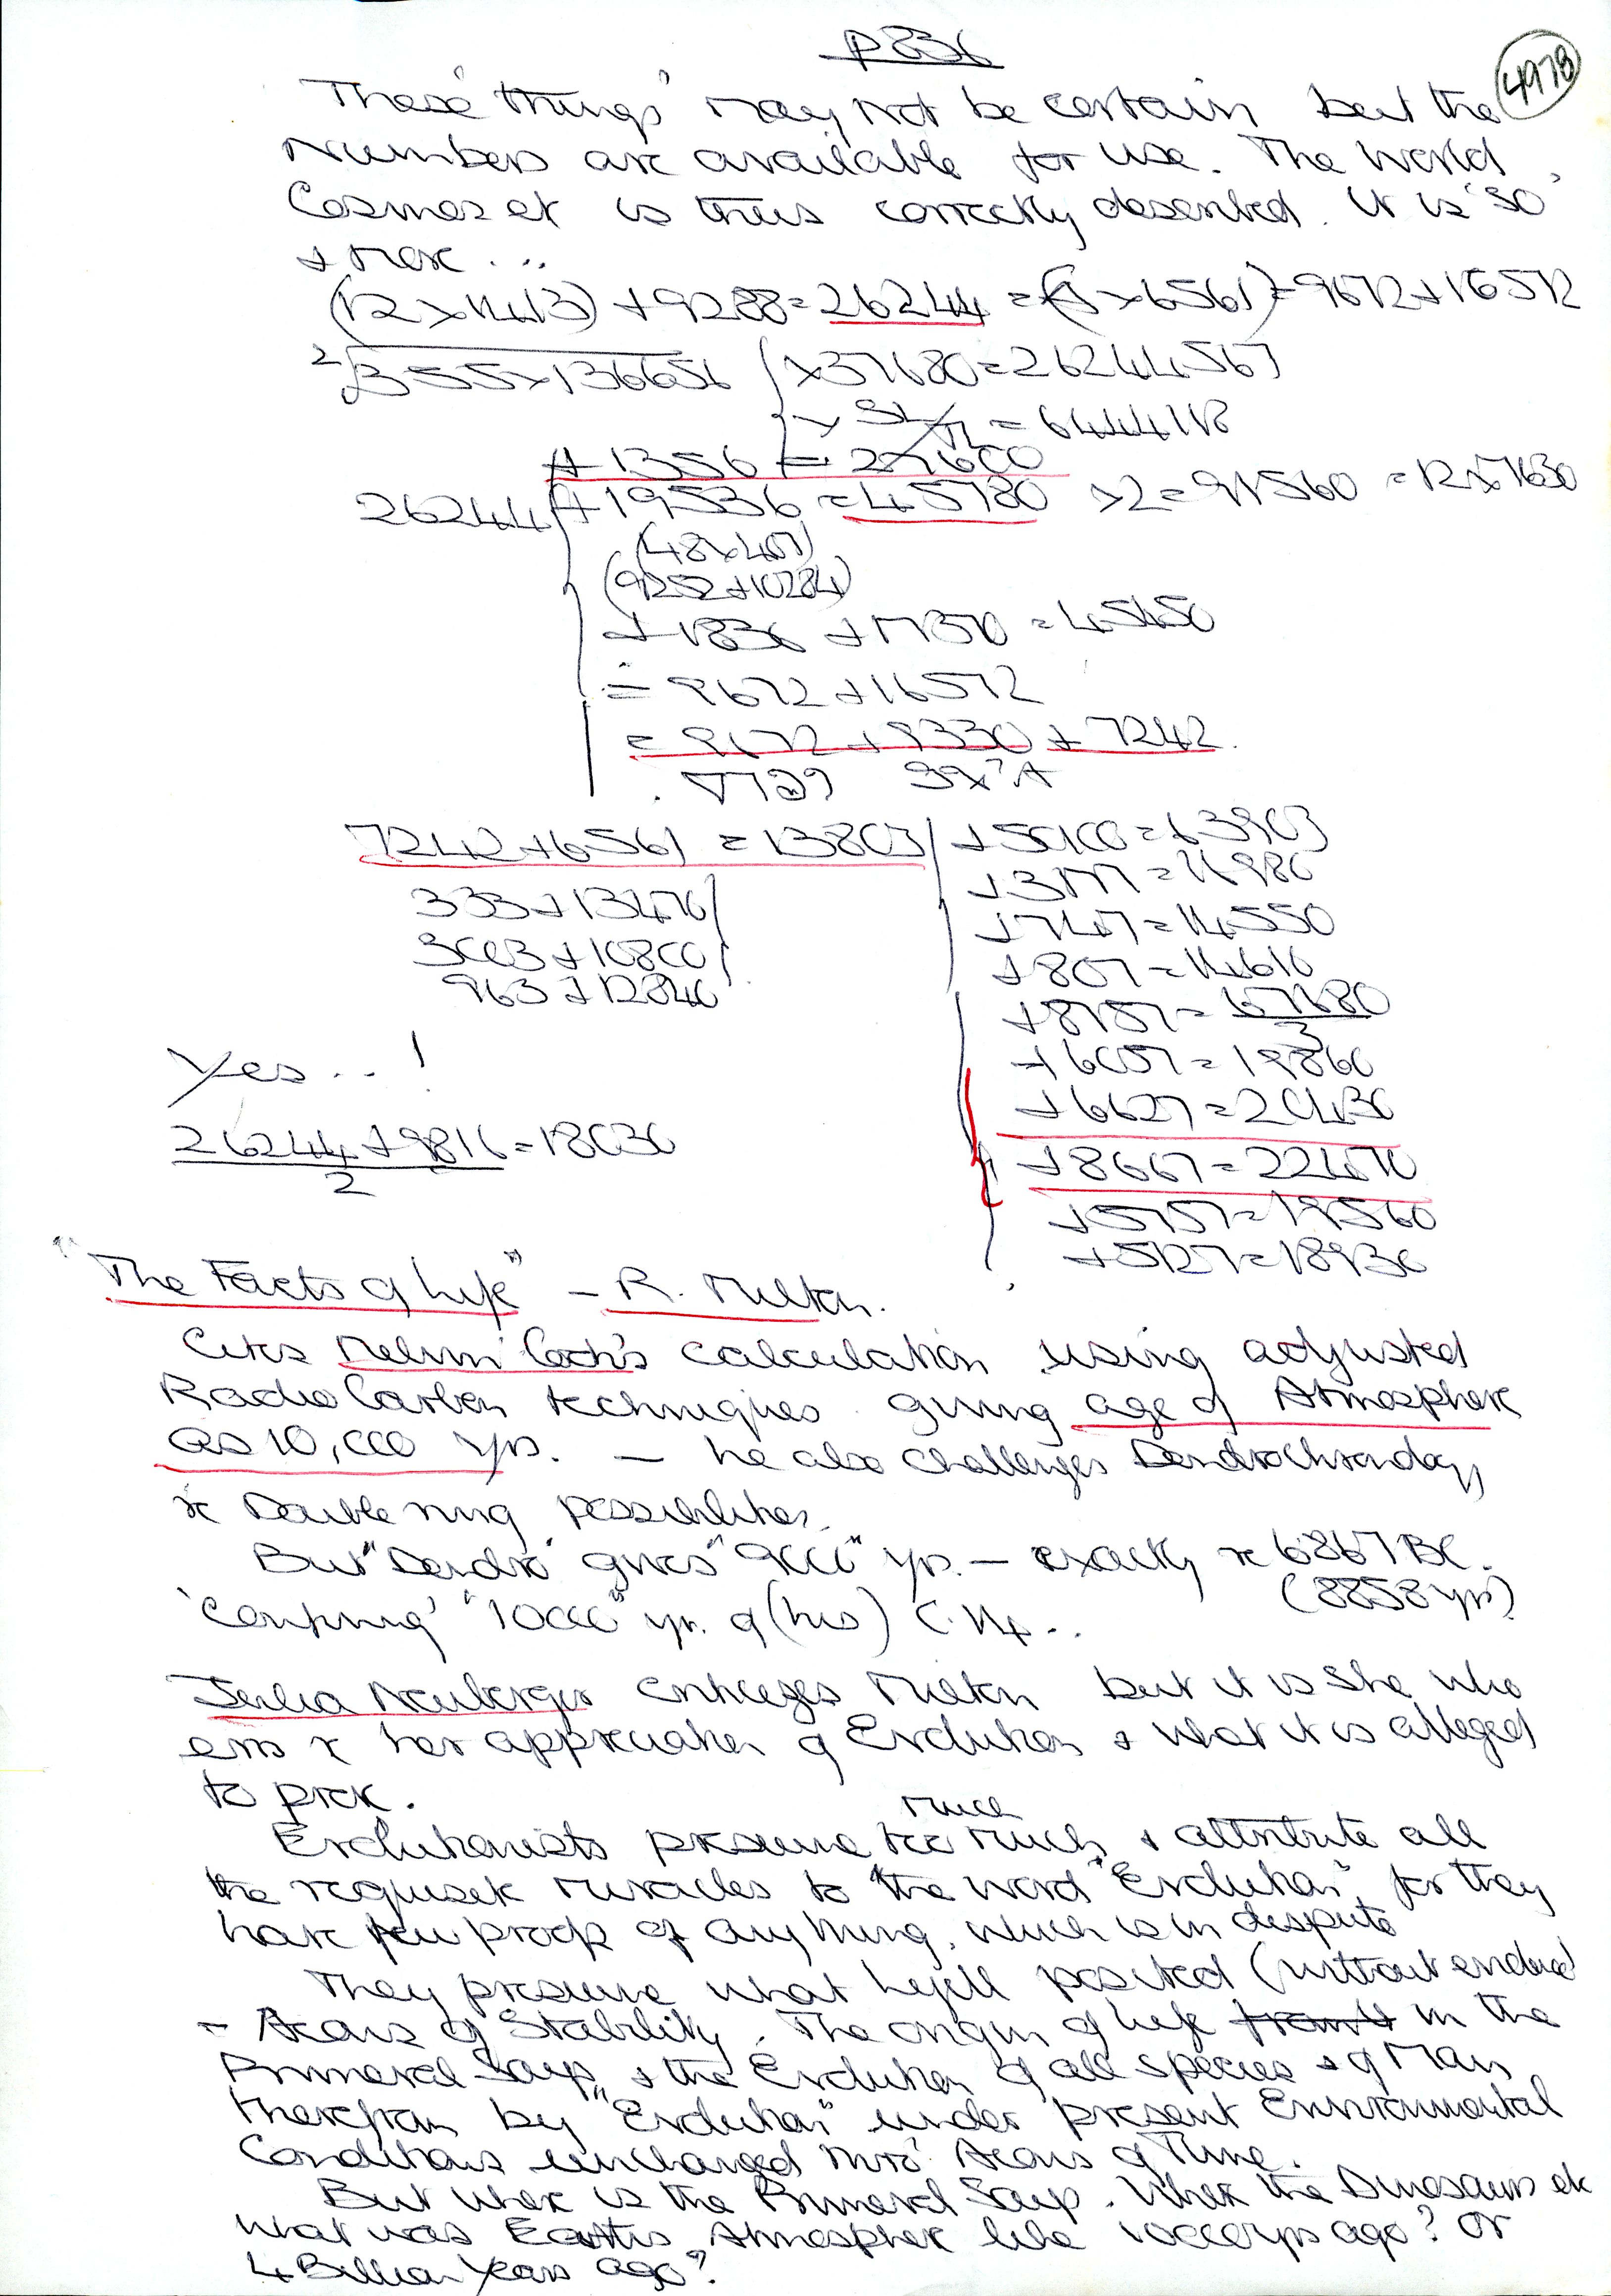 P836
4978
These 'things' may not be certain but the
Numbers are available for use. The World,
Cosmos et is thus correctly described. It is 'so'
+ more ...
(12 x 1413) + 9288 = 26244 = (4 x 6561) = 9672 + 16572
²√355 x 136656 / x 37680 = 26244567
= 6444118
+ 1356 = 27600
26244 + 19536 = 45780 x 2 = 91560 = 12 x 7630
(48 x 407)
(9252 + 10284)
+ 1836 + 17370 = 45450
= 9672 + 16572
= 9672 + 9330 + 7242
7242 + 6561 = 13803 / + 50100 = 63903
333 + 13470 /
3003 + 10800 /
963 + 12840
+ 3177 = 16980
+ 747 = 14550
+ 807 = 14610
+ 8757 = 67680
3
+ 6057 = 19860
+ 6627 = 20430
+ 8667 = 22470
+ 5757 = 19560
+ 5127 = 18930
Yes .. !
26244 + 9816 = 18030
2
"The Facts of Life" - R. Milton.
Cites Melvin Cook's calculation using adjusted
Radio Carbon techniques giving age of Atmosphere
as 10,000 yrs. — he also challenges Dendrochronology
Double ring possibilities.
But "Dendro" gives "9000" yrs. — exactly 6867 BC.
(8858 yrs)
'Confirming' "10000" yr. of (his) C.14 ..
Julia Neuberger criticizes Milton but it is she who
errs her appreciation of Evolution + what it is alleged
to prove.
much
Evolutionists presume too much, + attribute all
the requisite miracles to "the word "Evolution", for they
have few proofs of anything, which is in dispute
They presume what Lyell posited (without evidence)
- Aeons of Stability. The origin of life in the
Primeval Soup, + the Evolution of all species + of Man
therefrom by "Evolution" under present Environmental
Conditions unchanged thro' Aeons of Time.
But where is the Primeval Soup. Where the Dinosaurs etc
What was Earth's Atmosphere like 10000 yrs ago? or
4 Billion Years ago?